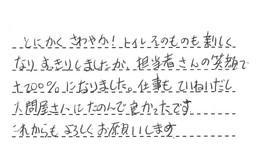 とにかく さわやか! トイレそのものも新しく
なり すっきりしましたが、担当者さんの笑顔で
+200%になりました。仕事もていねいだし
人間屋さんにたのんで良かったです
これからも よろしく お願いします